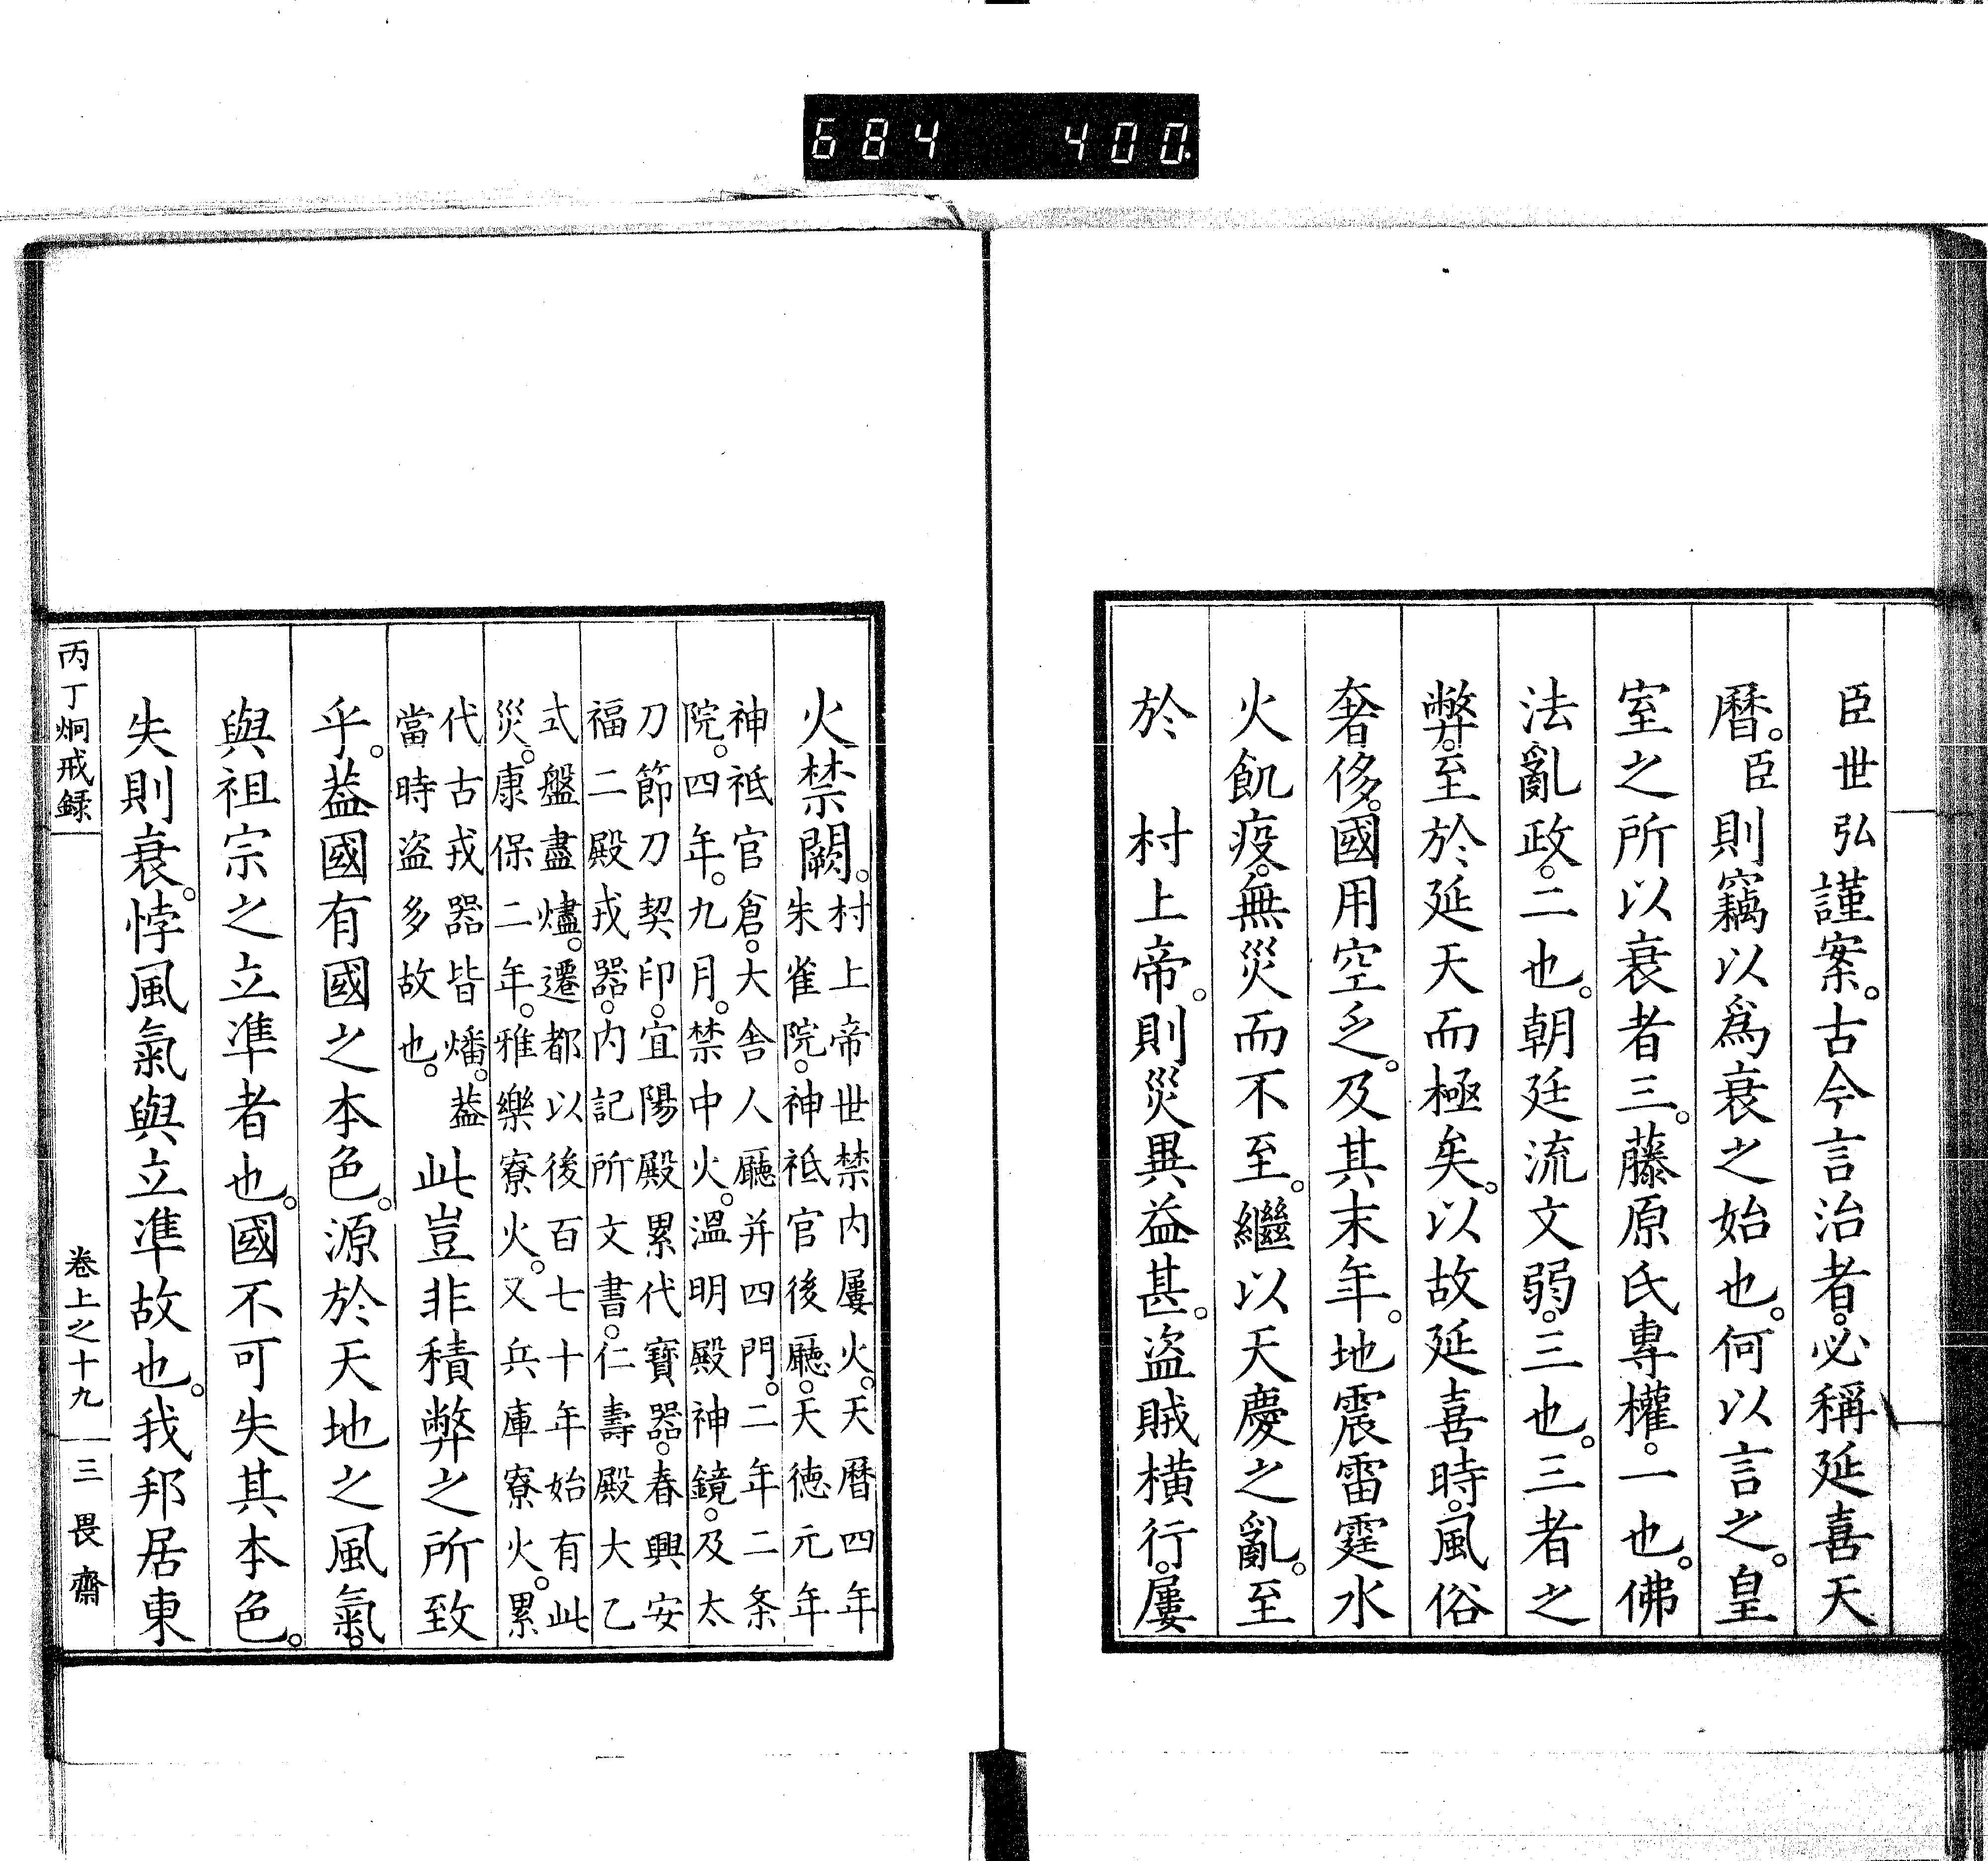 684 400.
臣世弘謹案。古今言治者。必稱延喜天
曆。臣則竊以爲衰之始也。何以言之。皇
室之所以衰者三。藤原氏專權。一也。佛
法亂政。二也。朝廷流文弱。三也。三者之
弊。至於延天而極矣。以故延喜時。風俗
奢侈。國用空乏。及其末年。地震雷霆水
火飢疫。無災而不至。繼以天慶之亂。至
於　村上帝。則災異益甚。盜賊橫行。屢
火禁闕。
村上帝世禁內屢火。天曆四年
朱雀院。神祇官後廳。天德元年
神祇官倉。大舍人廳并四門。二年二条
院。四年。九月。禁中火。溫明殿神鏡。及太
刀節刀契印。宜陽殿累代寶器。春興安
福二殿戎器。內記所文書。仁壽殿大乙
式盤盡燼。遷都以後百七十年始有此
災。康保二年。雅樂寮火。又兵庫寮火。累
代古戎器皆燔。葢
當時盜多故也。
此豈非積弊之所致
乎。葢國有國之本色。源於天地之風氣。
與祖宗之立準者也。國不可失其本色。
失則衰。悖風氣與立準故也。我邦居東
丙丁炯戒録　卷上之十九　三畏齋